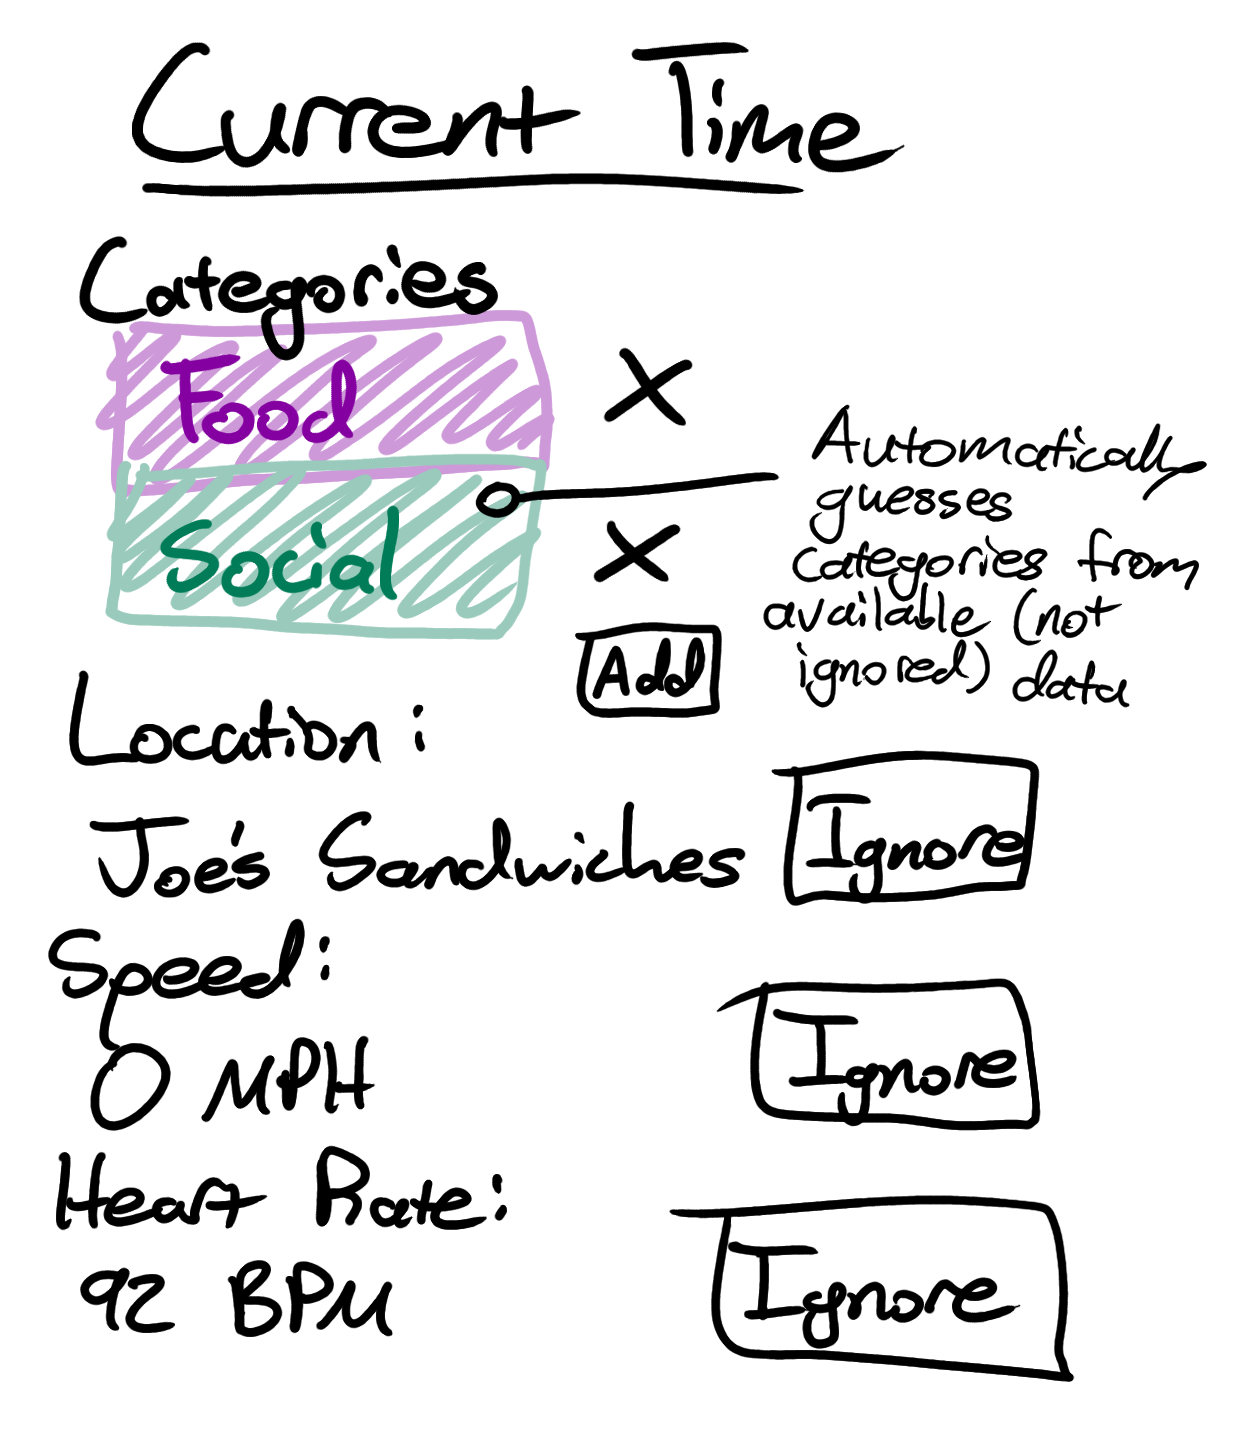 Current Time
Categories
Food X
Social X
Automatically
guesses
categories from
available (not
ignored) data
Add
Location:
Joe's Sandwiches Ignore
Speed:
0 MPH Ignore
Heart Rate:
92 BPM Ignore